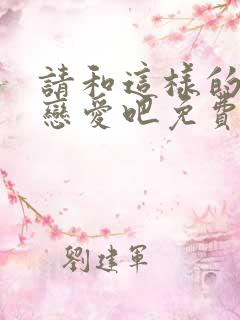 請和這樣的
戀愛吧免費
劉建軍